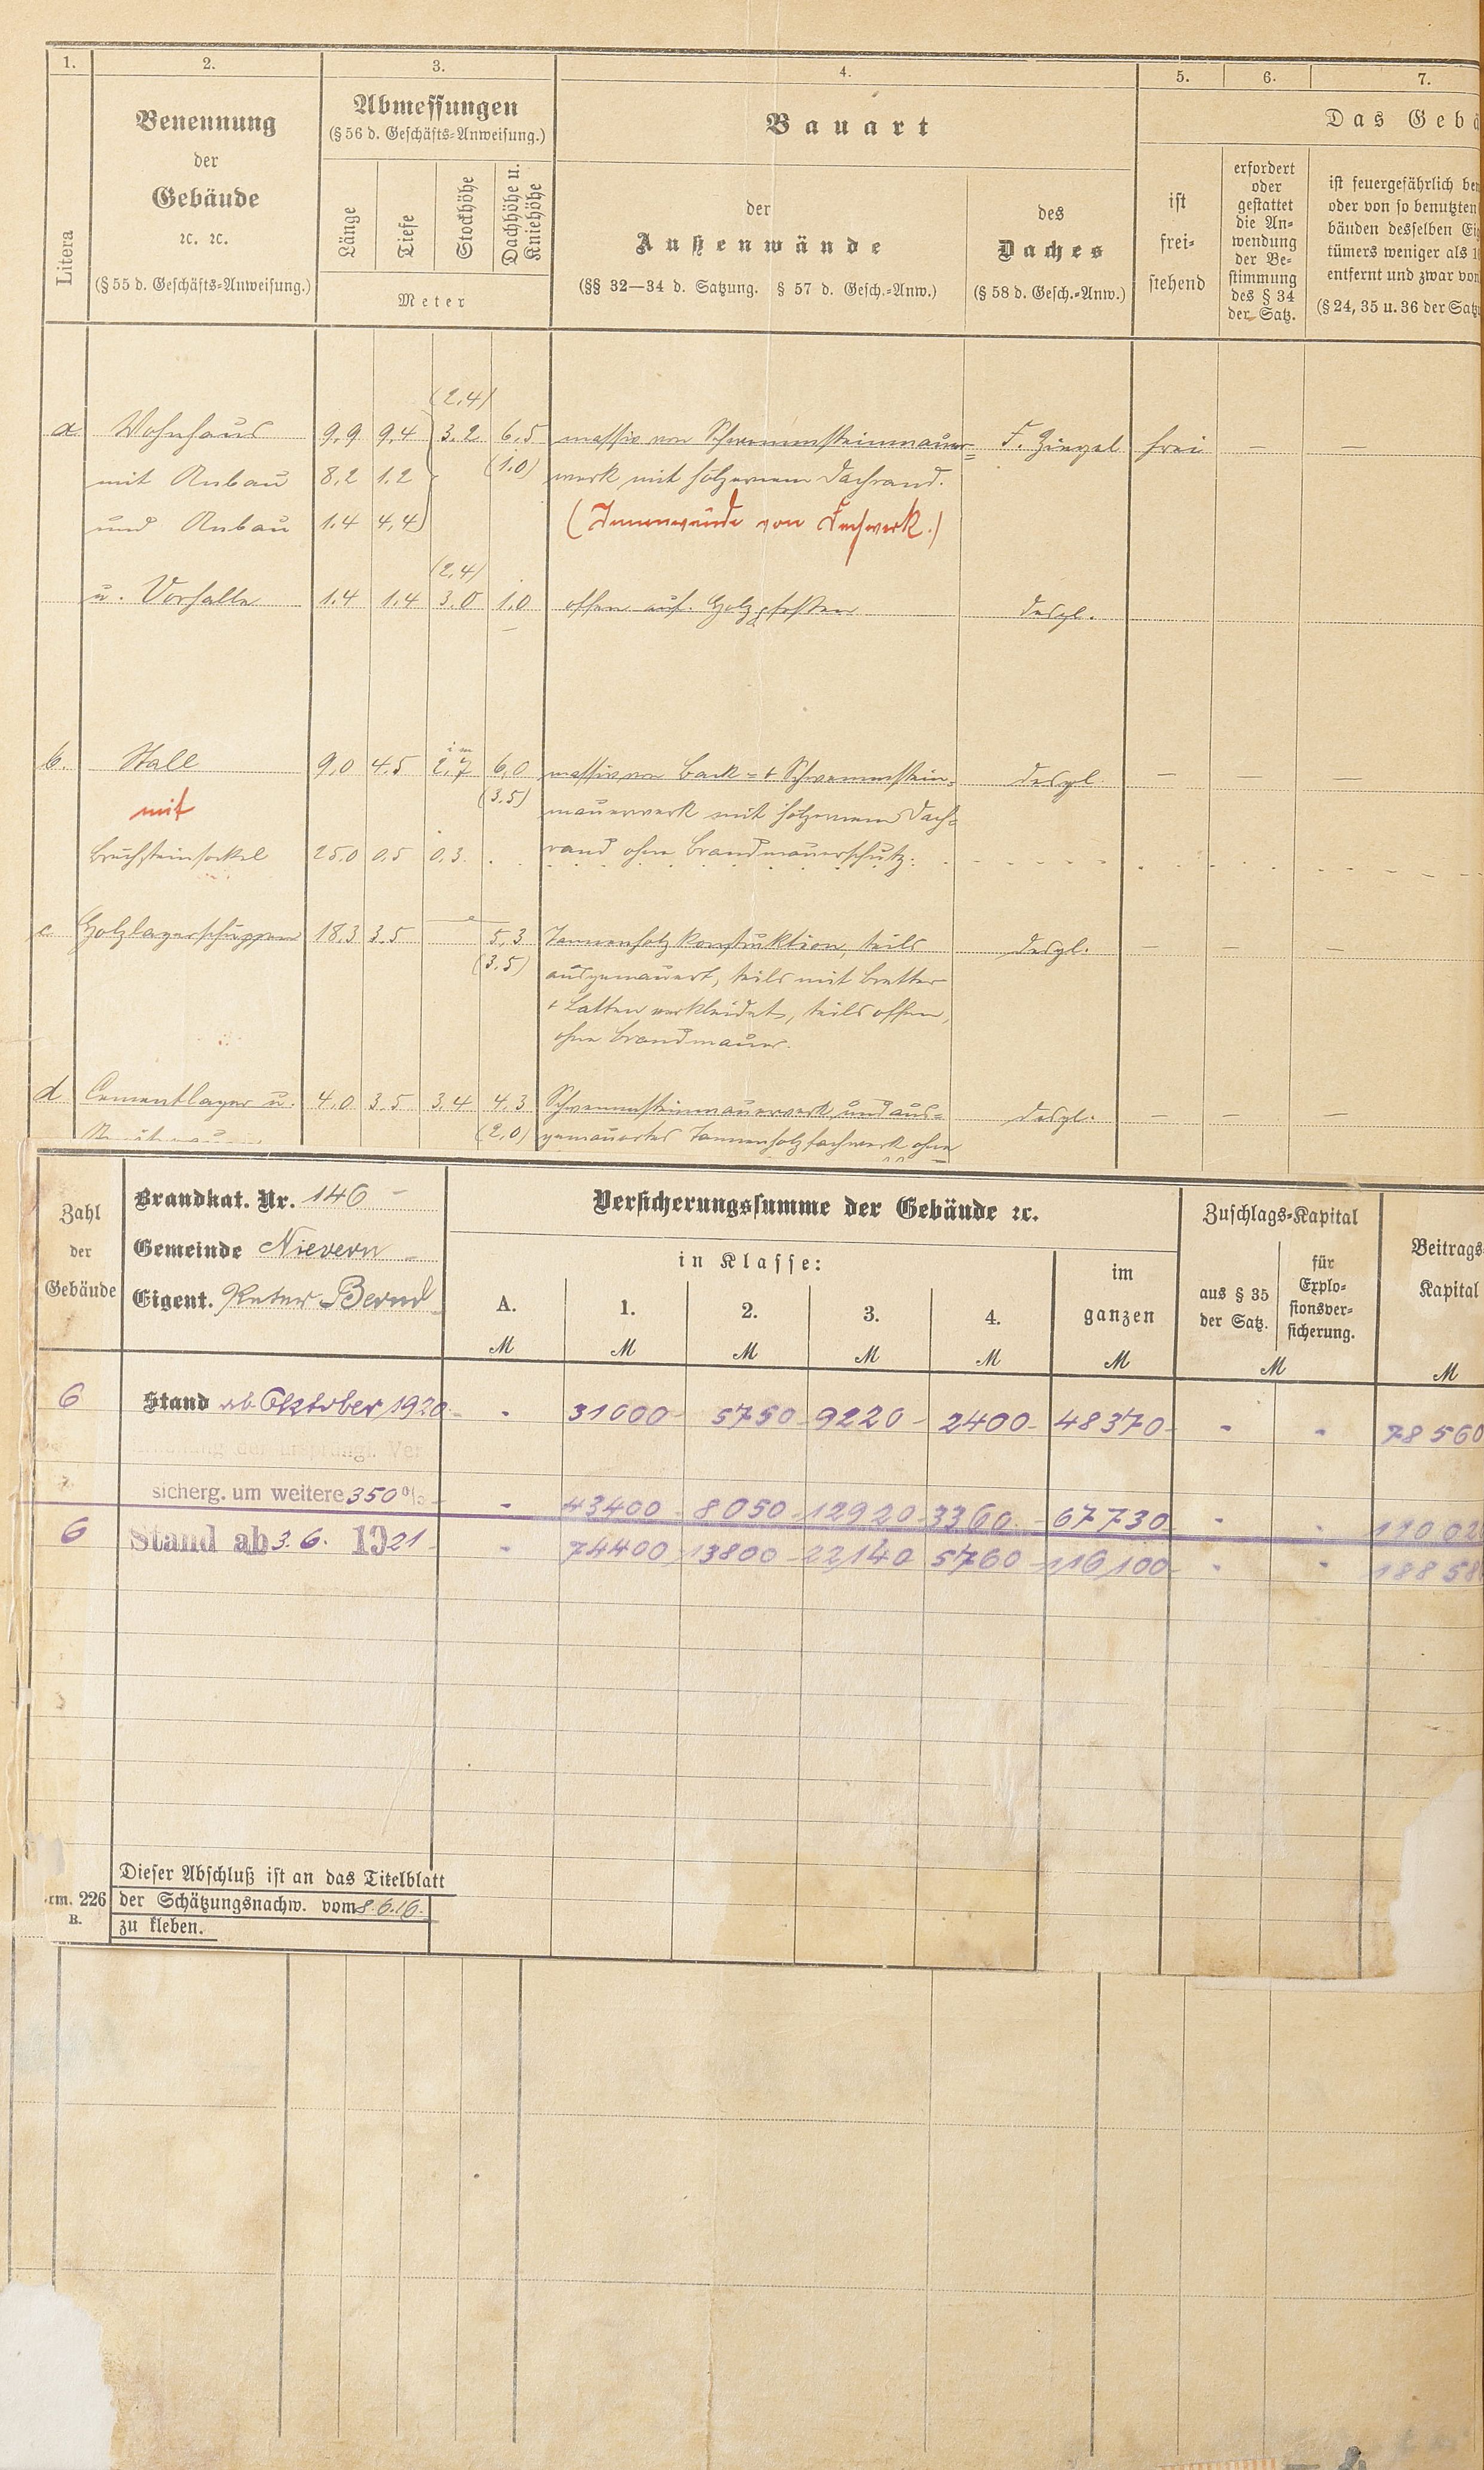 1. 2. 3. 4. 5. 6. 7.
Litera
Benennung
der
Gebäude
ꝛc. ꝛc.
(§ 55 d. Geschäfts-Anweisung.)
Abmessungen
(§ 56 d. Geschäfts-Anweisung.)
Länge Tiefe Stockhöhe Dachhöhe u. Kniehöhe
Meter
Bauart
der
Außenwände
(§§ 32—34 d. Satzung. § 57 d. Gesch.-Anw.)
des
Daches
(§ 58 d. Gesch.-Anw.)
Das Gebä
ist
frei-
stehend
erfordert
oder
gestattet
die An-
wendung
der Be-
stimmung
des § 34
der Satz.
ist feuergefährlich ben
oder von so benutzten
bäuden desselben Eig
tümers weniger als 1
entfernt und zwar von
(§ 24, 35 u. 36 der Satz
(2,4)
a Wohnhaus 9,9 9,4 3,2 6,5 massiv von Schwemmsteinmauer= F. Ziegel frei — —
mit Anbau 8,2 1,2 (1,0) werk mit hölzernem Dachrand.
und Anbau 1,4 4,4 (Innenwände von Fachwerk.)
(2,4)
u. Vorhalle 1,4 1,4 3,0 1,0 offen auf Holzpfosten desgl.
im
b. Stall 9,0 4,5 2,7 6,0 massiv von Back= + Schwemmstein= desgl. — — —
mit (3,5) mauerwerk mit hölzernem Dach=
Bruchsteinsockel 25,0 0,5 0,3 rand ohne Brandmauerschutz.
c Holzlagerschuppen 18,3 3,5 — 5,3 Tannenholzkonstruktion, teils desgl. — — —
(3,5) ausgemauert, teils mit Bretter
+ Latten verkleidet, teils offen,
ohne Brandmauer.
d Cementlager u. 4,0 3,5 3,4 4,3 Schwemmsteinmauerwerk und aus= desgl. — — —
(2,0) gemauertes Tannenholzfachwerk ohne
Zahl
der
Gebäude
Brandkat. Nr. 146
Gemeinde Nievern
Eigent. Peter Bernd
Versicherungssumme der Gebäude ꝛc.
in Klasse:
A. 1. 2. 3. 4.
im
ganzen
M M M M M M
Zuschlags-Kapital
aus § 35
der Satz.
für
Explo-
sionsver-
sicherung.
M
Beitrags
Kapital
M
6 Stand ab Oktober 1920 - 31000 5750 9220 2400 48370 - - 78560
sicherg. um weitere 350 % - 43400 8050 12920 3360 67730 - - 11002
6 Stand ab 3.6. 1921 - 74400 13800 22140 5760 116100 - - 18858
Dieser Abschluß ist an das Titelblatt
rm. 226 der Schätzungsnachw. vom 8.6.16.
B. zu kleben.